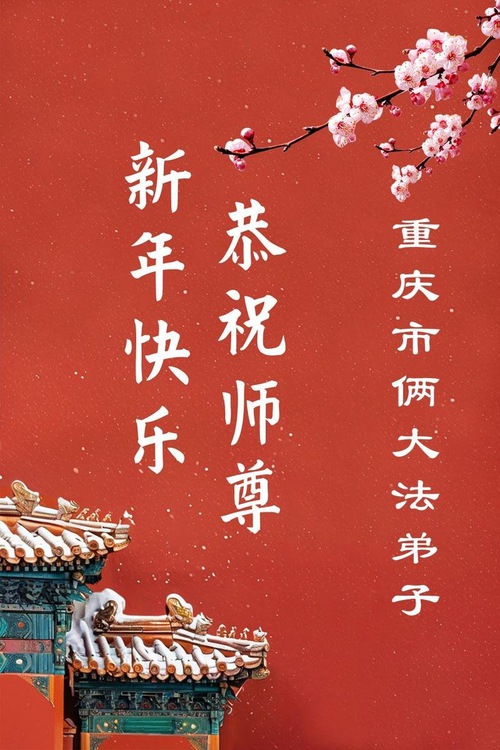 重庆市俩大法弟子
恭祝师尊
新年快乐